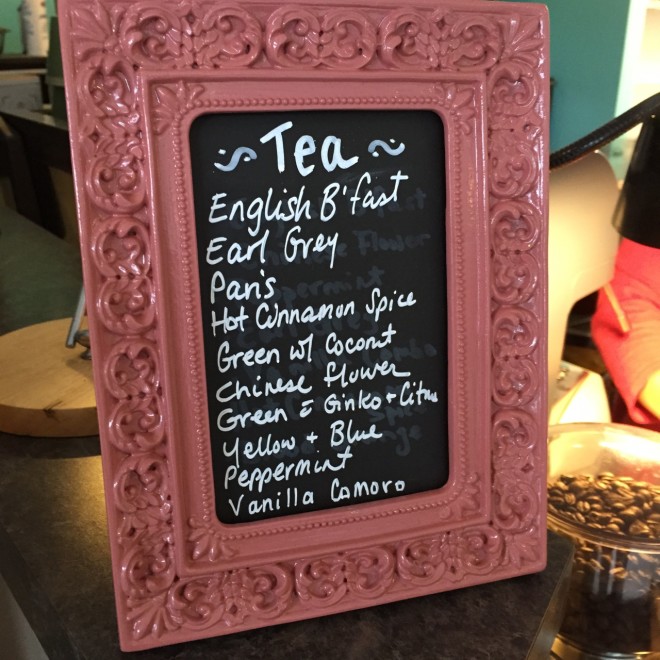 ~ Tea ~
English B'fast
Earl Grey
Paris
Hot Cinnamon Spice
Green w/ Coconut
Chinese Flower
Green c̄ Ginko + Citrus
Yellow + Blue
Peppermint
Vanilla Comoro